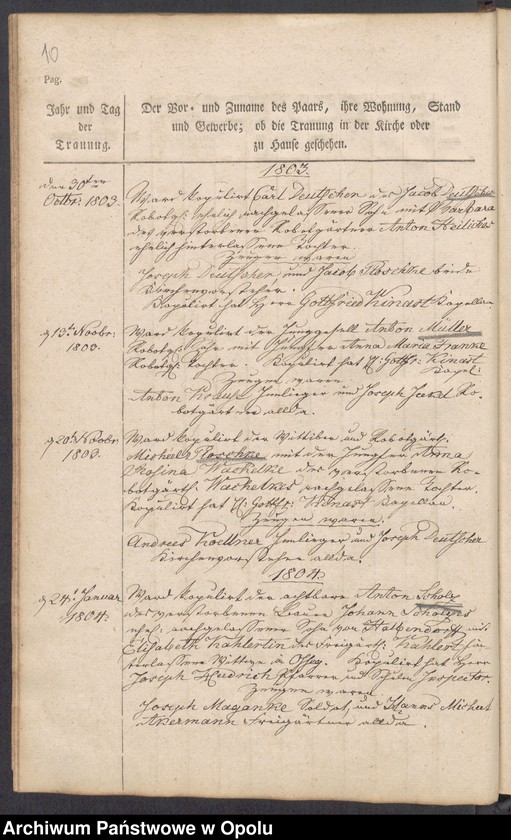 10
Pag.
Jahr und Tag
der
Trauung.
Der Vor- und Zuname des Paars, ihre Wohnung, Stand
und Gewerbe; ob die Trauung in der Kirche oder
zu Hause geschehen.
1803.
den 30ten
Octbr: 1803.
Ward kopulirt Carl Deutschen des Jacob Deutschen
Robotg: ehelich nachgelassener Sohn mit Barbara
des verstorbenen Robotgärtner Anton Heilikes
ehelich hinterlassene Tochter.
Zeugen waren
Joseph Deutscher und Jacob Ploschke beide
Kirchenvorsteher.
Kopulirt hat Herr Gottfried Kinast Kapellan
d 13t Novbr:
1803.
Ward kopulirt der Junggesell Anton Müller
Robotg: Sohn mit Jungfer Anna Maria
Robotg: Tochter. Kopulirt hat H: Gottfr: Kinast
Kapel:
Zeugen waren
Anton Inlieger und Joseph Ro-
botgärtner allda.
d 20t Novbr
1803.
Ward kopulirt der Wittiber und Robotgärt:
Michael Ploschke mit der Jungfer Anna
Rosina Wachelke des verstorbenen Ro-
botgärt: Wachelkes nachgelassene Tochter.
Kopulirt hat H: Gottfr: Kinast Kapellan.
Zeugen waren.
Andreas Kollner Inlieger und Joseph Deutscher
Kirchenvorsteher allda.
1804.
d 24t Januar
1804.
Ward kopulirt der achtbare Anton Scholz
des verstorbenen Bauer Johann Scholzens
ehel: nachgelassener Sohn von Halbendorff mit
Elisabeth Kahlertin des Freigärt: Kahlert hin-
terlassene Wittwe in Kopulirt hat Herr
Joseph Heidrich Pfarrer und Schulen Inspector.
Zeugen waren
Joseph Maganke Soldat, und Hanns Michael
Akermann Freigärtner allda.
Archiwum Państwowe w Opolu